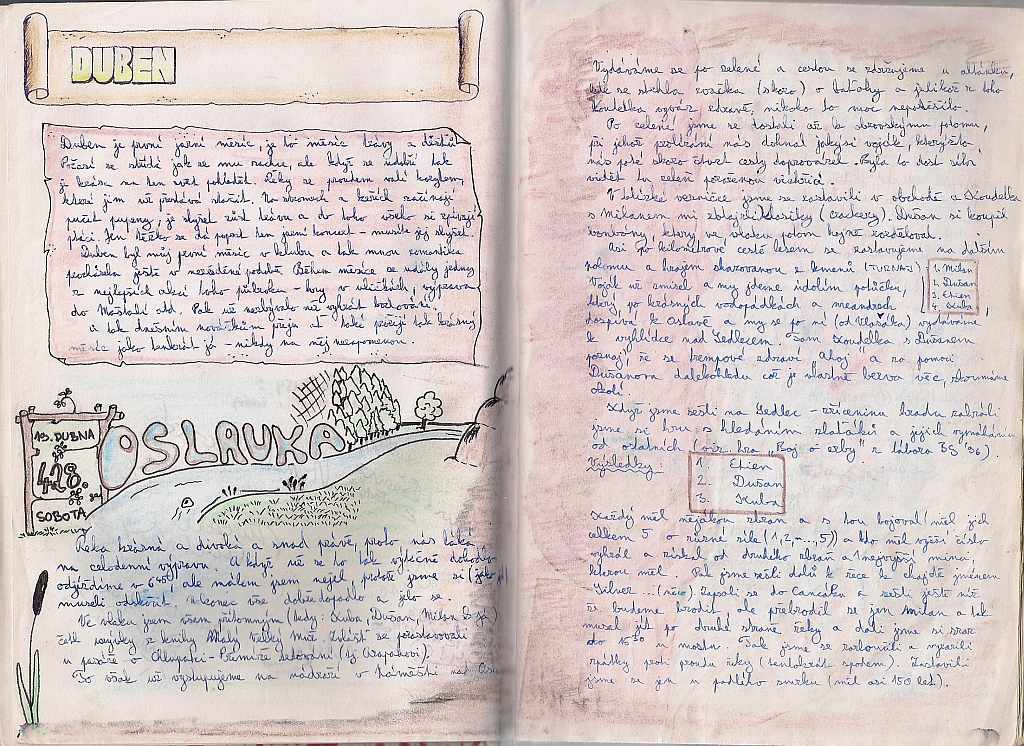 DUBEN
Duben je první jarní měsíc, je to měsíc trávy a dešťů.
Počasí se střídá jak se mu zachce, ale když se udobří tak
je krása na ten svět pohledět. Řeky se proudem valí korytem,
které jim už přestává stačit. Na stromech a keřích začínají
pučet pupeny, je slyšet růst trávu a do toho všeho si zpívají
ptáci. Jen těžko se dá popsat ten jarní koncert - musíte jej slyšet.
Duben byl můj první měsíc v klubu a tak mnou romantika
prohlížela ještě v nezištné podobě. Během měsíce se udály jedny
z nejlepších akcí toho půlroku - hry v uličkách, výprava
do Maštalí atd. Pak už nezbývalo než vyhrát bodování
a tak dnešním nováčkům přeju ať také prožijí tak krásný
měsíc jako tenkrát já - nikdy na něj nezapomenu.
13. DUBNA
428.
SOBOTA
OSLAVKA
Řeka krásná a divoká a snad právě proto nás láká
na celodenní výpravu. A když už se to tak výtečně dohodlo
odjíždíme v 6 45, ale málem jsem nejel, protože jsme si
museli odskočit. Nakonec vše dobře dopadlo a jelo se.
Ve vlaku jsem všem přítomným (tedy: Kuba, Dušan, Milan & já)
četl úryvky z knihy Malý Velký Muž. Zvlášť se
u pasáže o
To však už vystupujeme na nádraží v Náměšti nad
Vydáváme se po zelené a cestou se zdržujeme u altánku,
kde se strhla rvačka (skoro) o baťohy a jelikož z toho
Koudelka vyvázl zdravě, nikoho to moc nepotěšilo.
Po zelené jsme se dostali až k obrovskýmu polomu,
při jehož prolízání nás dohnal jakýsi voják, který
nás poté skoro čtvrt cesty doprovázel. Byla to dost síla
vidět tu celou poraženou
V blízké vesničce jsme se zastavili v obchodě a Koudelka
s Milanem mi zblajzli klasiky (crackery). Dušan si koupil
bonbóny, který ve vlaku potom hojně rozděloval.
Asi po kilometrové cestě lesem se zastavujeme na dalším
polomu a hrajem skazovanou z kmenů (TURNAJ)
1. Milan
2. Dušan
3. Ehien
4. Kuba
Voják už zmizel a my jdeme údolím potůčku,
který po krásných vodopádkách a meandrech
dospívá k Oslavě a my se po ní (od Vlasáka) vydáváme
k vyhlídce nad Sedlecem. Tam Koudelka s Dušanem
poznaj, že se trempové zdraví "Ahoj" a za pomoci
Dušanova dalekohledu což je vlastně bezva věc, zkoumáme
okolí.
Když jsme sešli na Sedlec - zříceninu hradu zahráli
jsme si hru s hledáním zlaťáků a jejich vymáháním
od ostatních (viz. hra "Boj o erby" z tábora BS '96).
Výsledky:
1. Ehien
2. Dušan
3. Kuba
Každý měl nějakou zbraň a s tou bojoval (měl jich
celkem 5 o různé síle (1, 2, ..., 5)) a kdo měl vyšší číslo
vyhrál a získal od druhého zbraň a nejvyšší minci
kterou měl. Pak jsme sešli dolů k řece k chajdě jménem
-Silver ...(něco). Zapsali se do Cancáku a zjistili ještě níž
že budeme brodit, ale přebrodil se jen Milan a tak
musel jít po druhé straně řeky a dali jsme si sraz
do 15 30 u mostu. Tak jsme se rozloučili a vyrazili
zpátky proti proudu řeky (tentokrát spodem). Zastavili
jsme se jen u padlého smrku (měl asi 150 let).